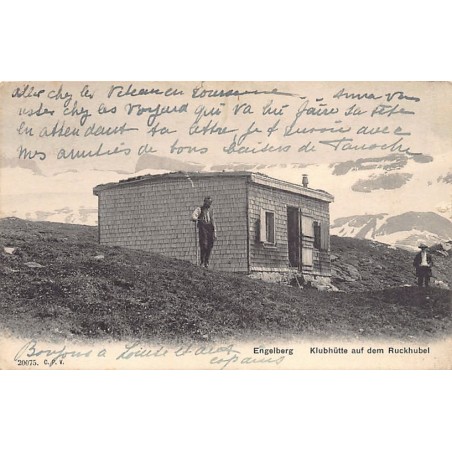 aller chez les Veteau en Touraine — Anna va
rester chez les Voguard qui va lui faire sa fête
en attendant sa lettre je t'envoie avec
mes amitiés de tous baisers de Tanoche
Engelberg Klubhütte auf dem Ruckhubel
Bonjour à Louise et les copains
20075. C. P. V.